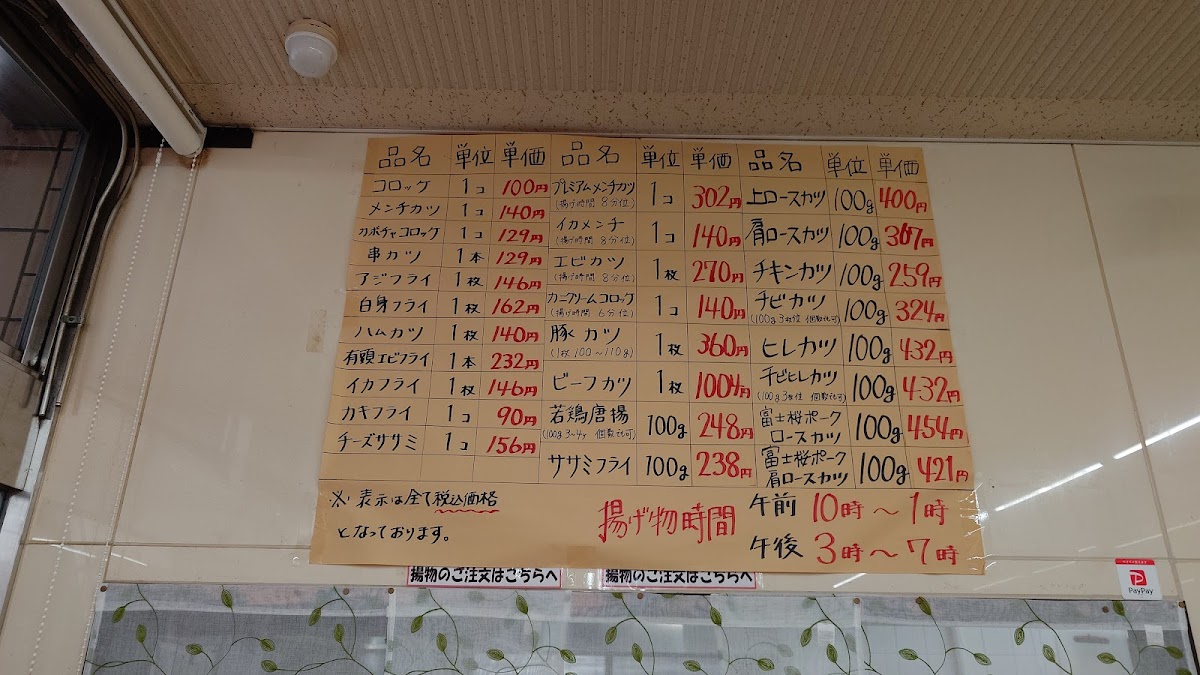 品名 単位 単価
コロッケ 1コ 100円
メンチカツ 1コ 140円
カボチャコロッケ 1コ 129円
串カツ 1本 129円
アジフライ 1枚 146円
白身フライ 1枚 162円
ハムカツ 1枚 140円
有頭エビフライ 1本 232円
イカフライ 1枚 146円
カキフライ 1コ 90円
チーズササミ 1コ 156円
品名 単位 単価
プレミアムメンチカツ 1コ 302円
(揚げ時間 8分位)
イカメンチ 1コ 140円
(揚げ時間 8分位)
エビカツ 1枚 270円
(揚げ時間 8分位)
カニクリームコロッケ 1コ 140円
(揚げ時間 6分位)
豚カツ 1枚 360円
(1枚100〜110g)
ビーフカツ 1枚 1004円
若鶏唐揚 100g 248円
(100g 3〜4ヶ 個数許可)
ササミフライ 100g 238円
品名 単位 単価
上ロースカツ 100g 400円
肩ロースカツ 100g 367円
チキンカツ 100g 259円
チビカツ 100g 324円
(100g 3枚位 個数許可)
ヒレカツ 100g 432円
チビヒレカツ 100g 432円
(100g 3枚位 個数許可)
富士桜ポーク
ロースカツ 100g 454円
富士桜ポーク
肩ロースカツ 100g 421円
※表示は全て税込価格
となっております。
揚げ物時間
午前 10時〜1時
午後 3時〜7時
揚物のご注文はこちらへ
揚物のご注文はこちらへ
PayPay